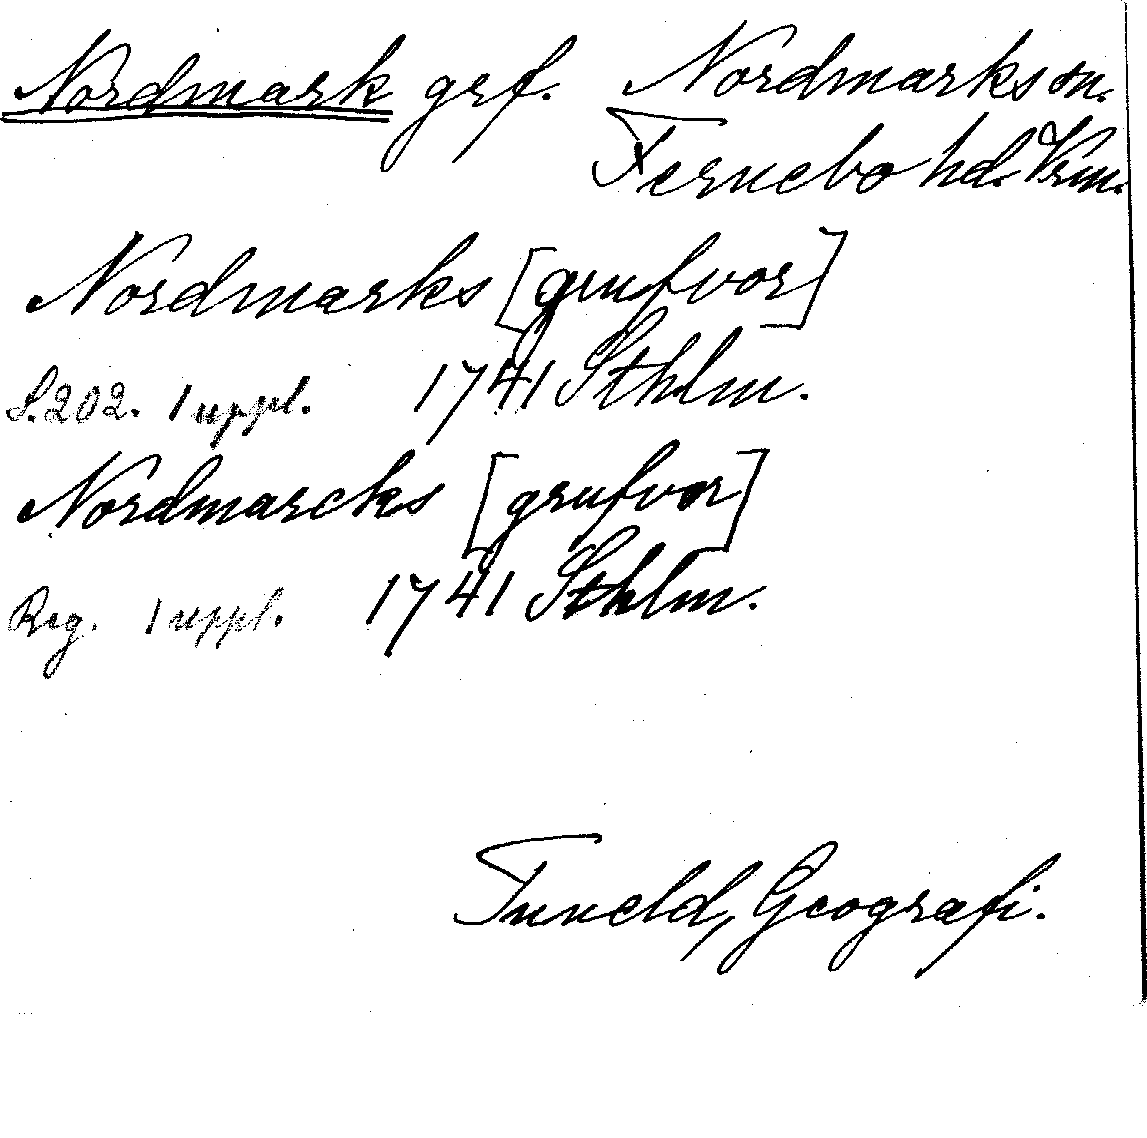 Nordmark grf. Nordmarks sn.
Fernebo hd. Vrm.
Nordmarks [grufvor]
S. 202. 1 uppl. 1741 Sthlm.
Nordmarcks [grufvor]
Reg. 1 uppl. 1741 Sthlm.
Tuneld, Geografi.